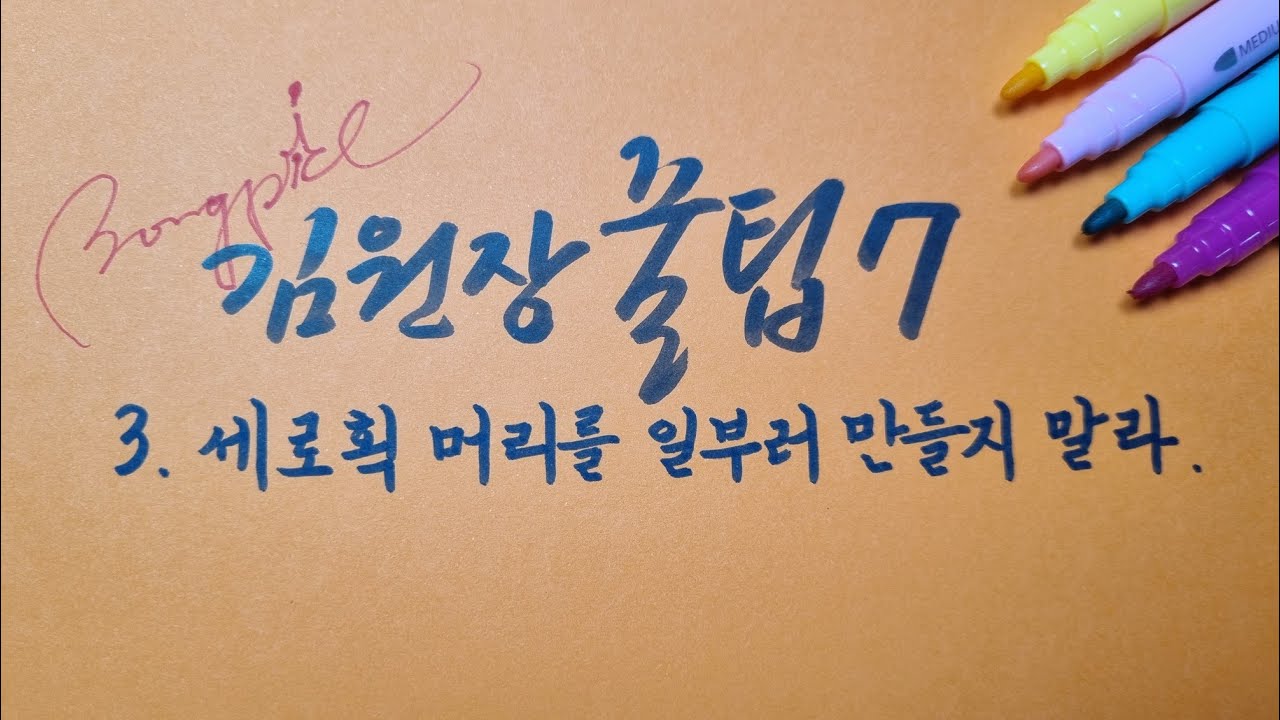 Bongpid
김원장 꿀팁 7
3. 세로획 머리를 일부러 만들지 말라.